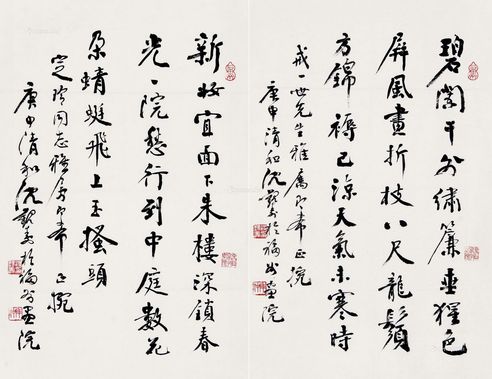 碧闌干外繡簾垂猩色
屏風畫折枝八尺龍鬚
方錦褥已涼天氣未寒時
戒一世先生雅屬即希正腕
庚申清和沈覲壽於福州畫院
新妝宜面下朱樓深鎖春
光一院愁行到中庭數花
朵蜻蜓飛上玉搔頭
定同志雅屬即希正腕
庚申清和沈覲壽於福州畫院